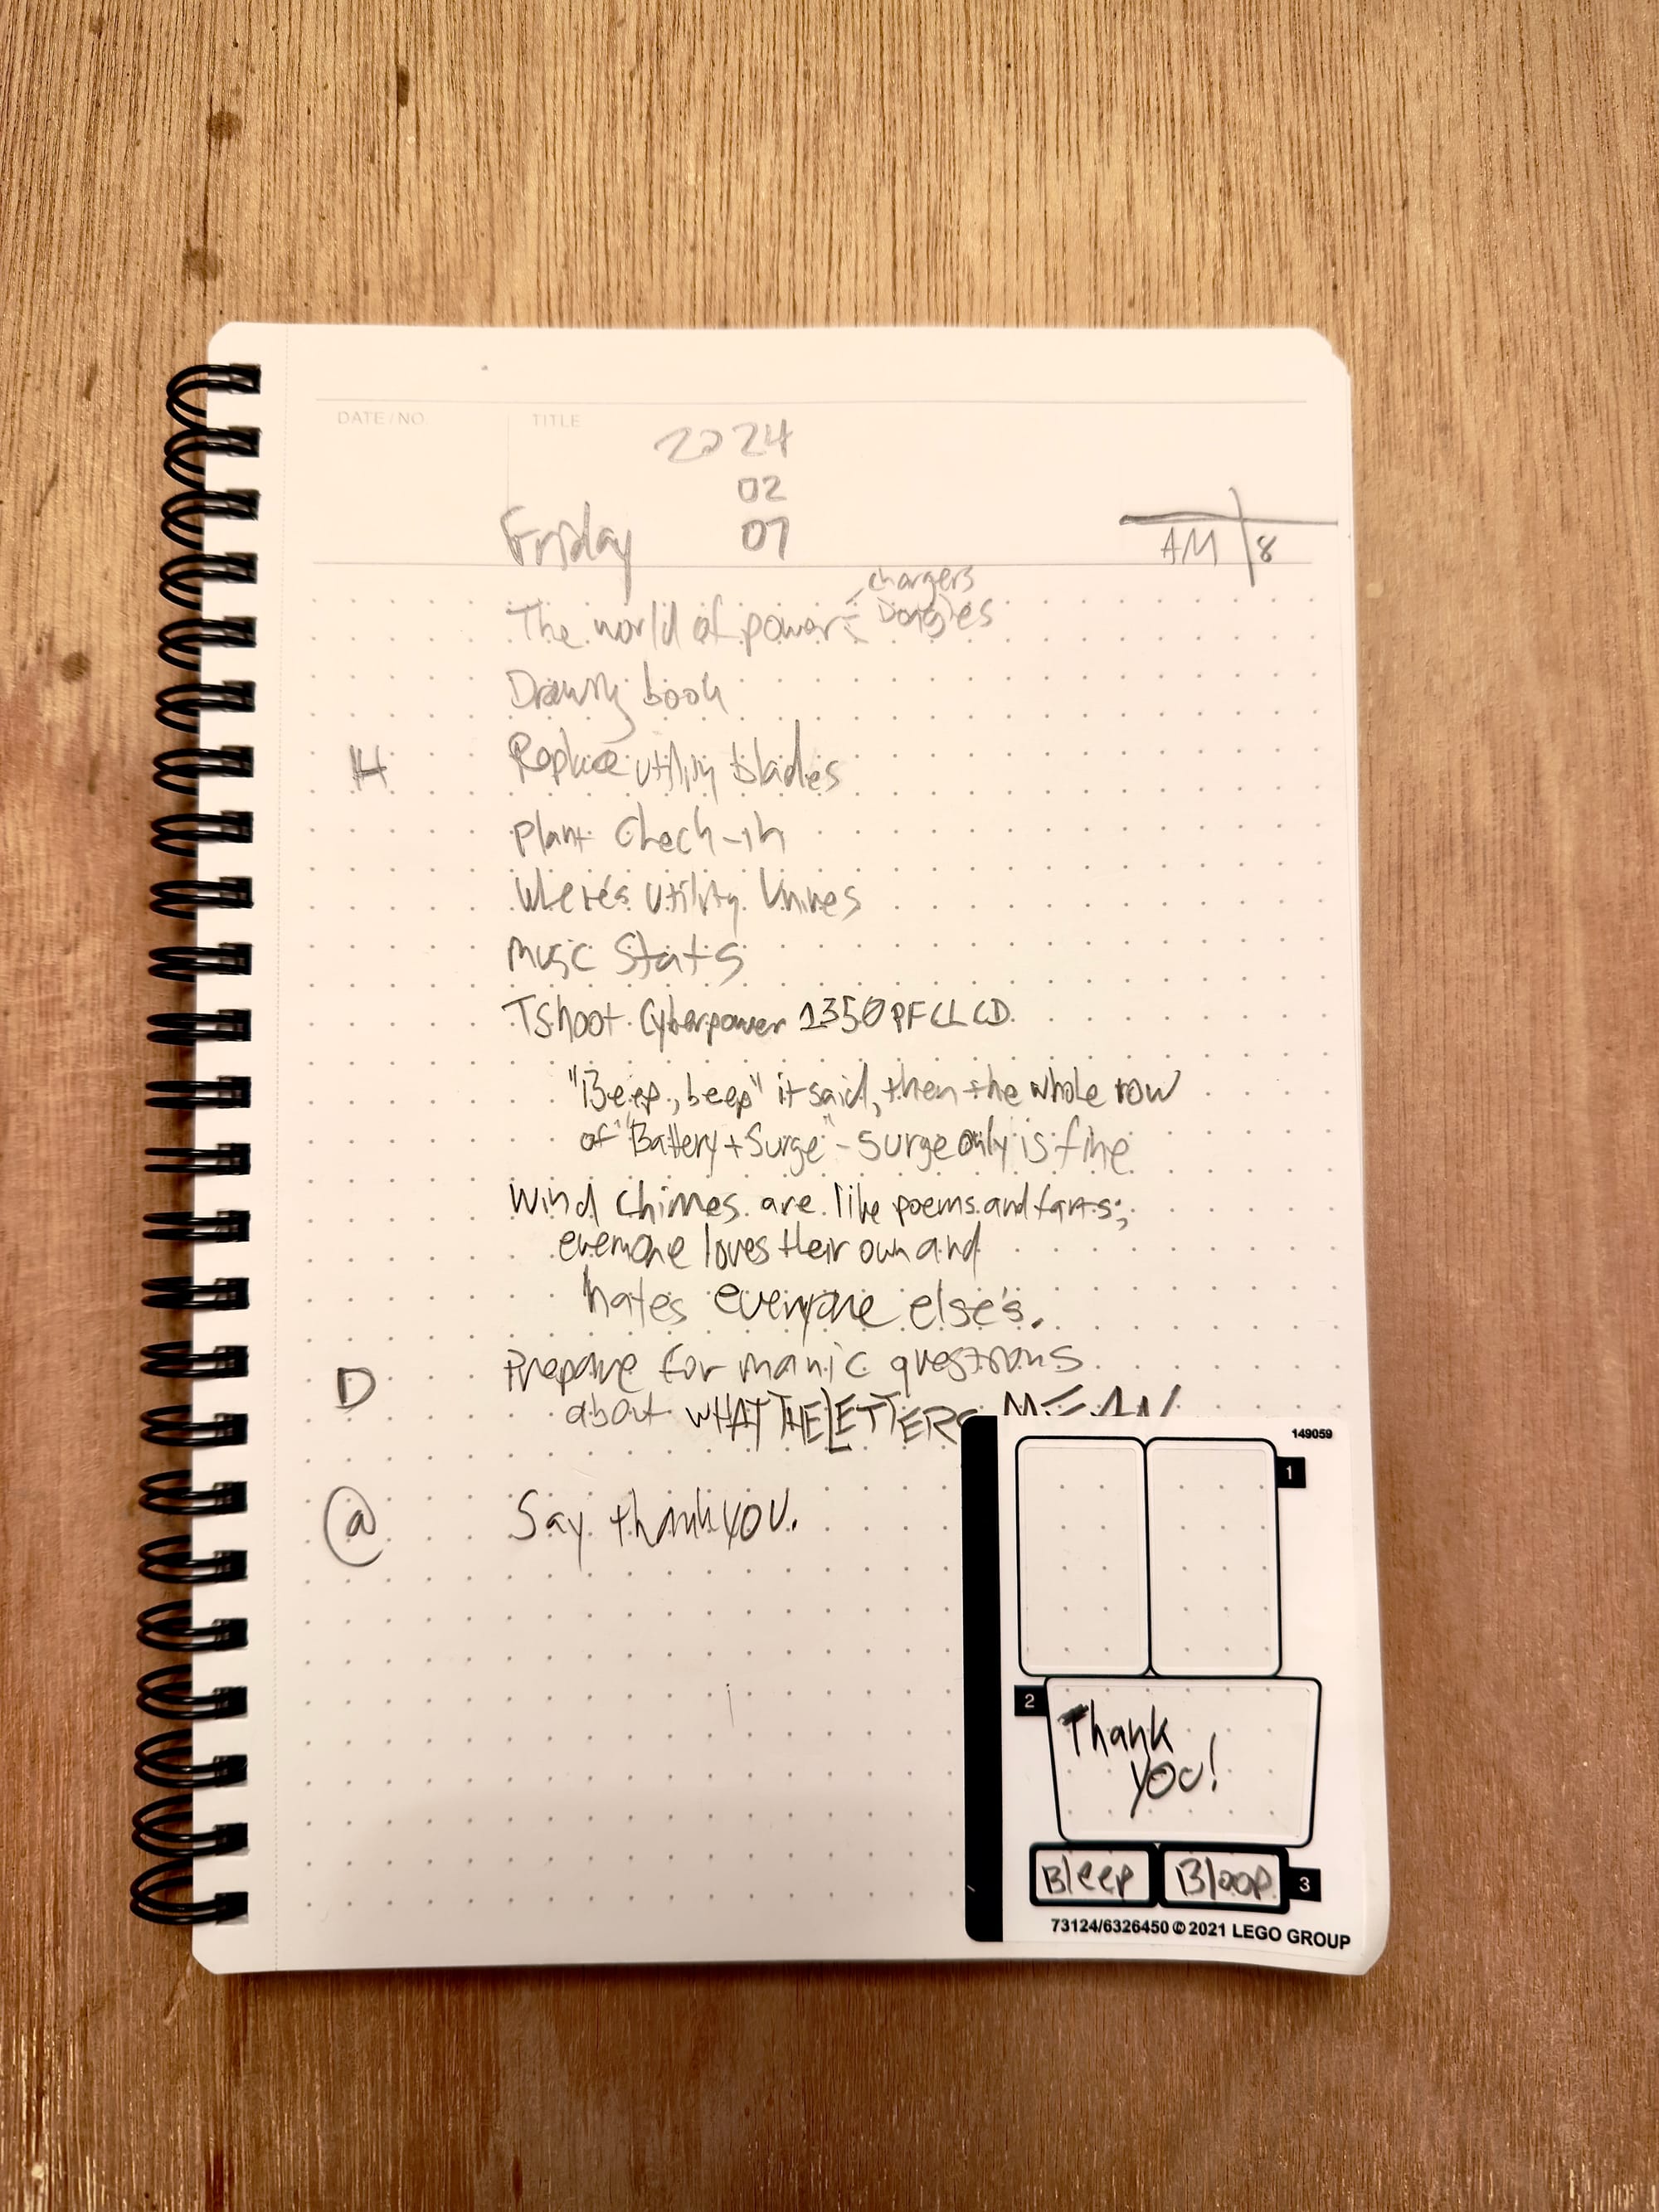 DATE/NO.
TITLE
2024
02
Friday 07
AM 8
chargers
The world of power Dongles
Drawing book
H Replace utility blades
Plant Check-in
Where's utility knives
Music Stats
Tshoot Cyberpower 1350PFCLCD
"Beep, beep" it said, then the whole row
of "Battery + Surge" - Surge only is fine
Wind chimes are like poems and farts;
everyone loves their own and
hates everyone else's.
D Prepare for manic questions
about WHAT THE LETTERS MEAN
@ Say thank you.
149059
1
2
Thank
you!
Bleep Bloop 3
73124/6326450 © 2021 LEGO GROUP